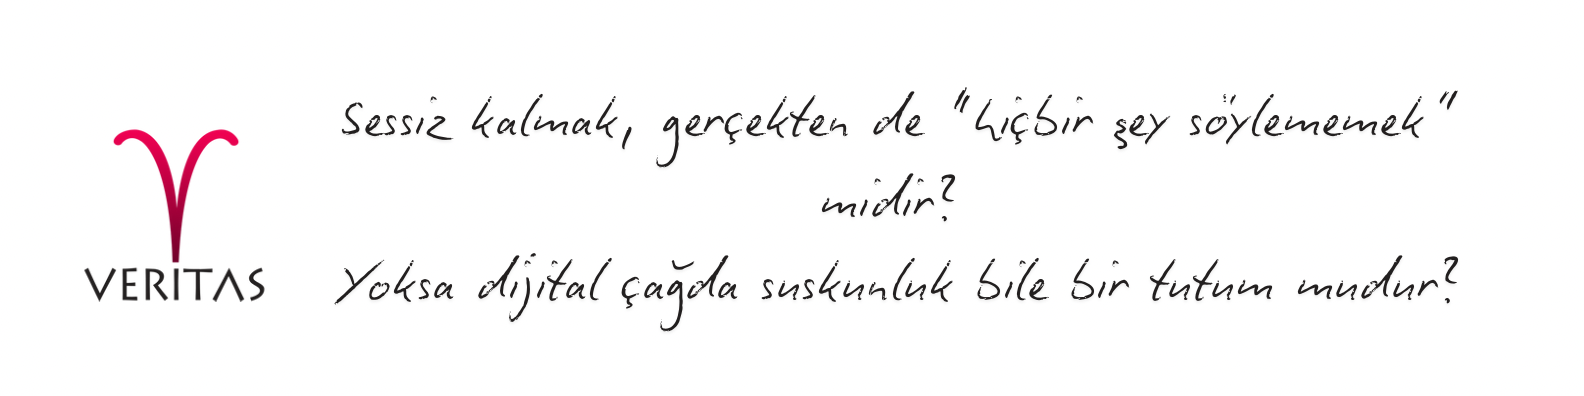 VERITAS
Sessiz kalmak, gerçekten de "hiçbir şey söylememek"
midir?
Yoksa dijital çağda suskunluk bile bir tutum mudur?